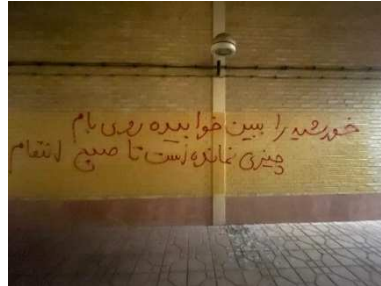 خورشید را ببین خوابیده روی بام
چیزی نمانده است تا صبح انتقام